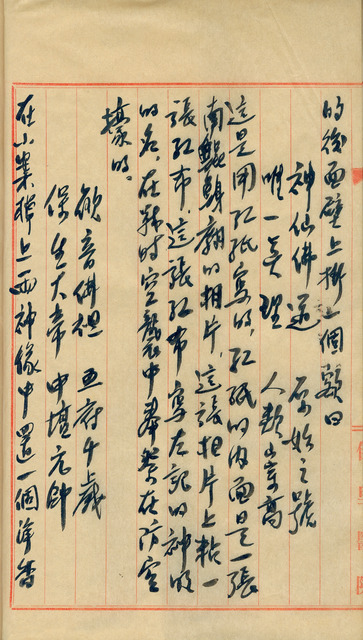 的後面壁上掛一個額曰
神仙佛逕　原始之號
唯一真理　人類崇高
這是用紅紙寫的，紅紙的內面是一張
南鯤鯓廟的相片，這張相片上粘一
張紅布，這張紅布寫左記的神明
的名，在戰時空襲中奉祭在防空
壕的。
觀音佛祖　五府千歲
保生大帝　中壇元帥
在小案棹上西神緣中置一個